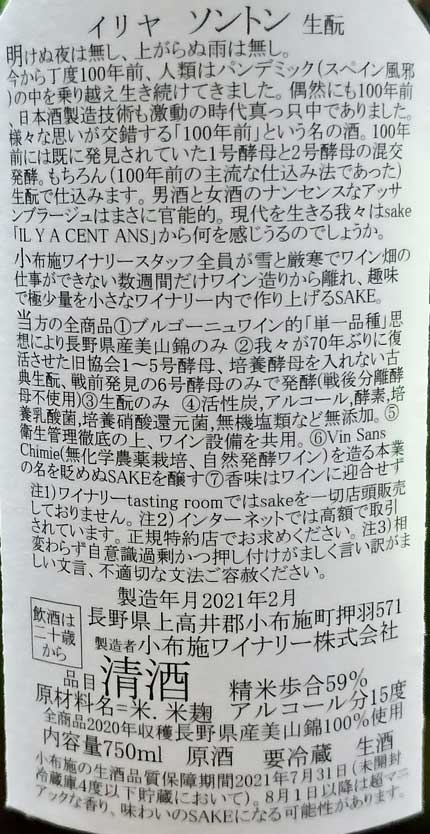 イリヤ ソントン 生酛
明けぬ夜は無し、上がらぬ雨は無し。
今から丁度100年前、人類はパンデミック(スペイン風邪
)の中を乗り越え生き続けてきました。偶然にも100年前
、日本酒製造技術も激動の時代真っ只中でありました。
様々な思いが交錯する「100年前」という名の酒。100年
前には既に発見されていた1号酵母と2号酵母の混交
発酵。もちろん(100年前の主流な仕込み法であった)
生酛で仕込みます。男酒と女酒のナンセンスなアッサ
ンブラージュはまさに官能的。現代を生きる我々はsake
「IL Y A CENT ANS」から何を感じうるのでしょうか。
小布施ワイナリースタッフ全員が雪と厳寒でワイン畑の
仕事ができない数週間だけワイン造りから離れ、趣味
で極少量を小さなワイナリー内で作り上げるSAKE。
当方の全商品①ブルゴーニュワイン的「単一品種」思
想により長野県産美山錦のみ ②我々が70年ぶりに復
活させた旧協会1〜5号酵母、培養酵母を入れない古
典生酛、戦前発見の6号酵母のみで発酵(戦後分離酵
母不使用)③生酛のみ ④活性炭,アルコール,酵素,培
養乳酸菌,培養硝酸還元菌,無機塩類など無添加。⑤
衛生管理徹底の上、ワイン設備を共用。⑥Vin Sans
Chimie(無化学農薬栽培、自然発酵ワイン)を造る本業
の名を貶めぬSAKEを醸す⑦香味はワインに迎合せず
注1)ワイナリーtasting roomではsakeを一切店頭販売
しておりません。注2)インターネットでは高額で取引
されています。正規特約店でお求めください。注3)相
変わらず自意識過剰かつ押し付けがましく言い訳がま
しい文言、不適切な文法ご容赦ください。
製造年月2021年2月
飲酒は
二十歳
から
長野県上高井郡小布施町押羽571
製造者小布施ワイナリー株式会社
品目 清酒 精米歩合59%
原材料名=米.米麹 アルコール分15度
全商品2020年収穫長野県産美山錦100%使用
内容量750ml 原酒 要冷蔵 生酒
小布施の生酒品質保障期間2021年7月31日(未開封
冷蔵庫4度以下貯蔵において)。8月1日以降は超マニ
アックな香り、味わいのSAKEになる可能性があります。